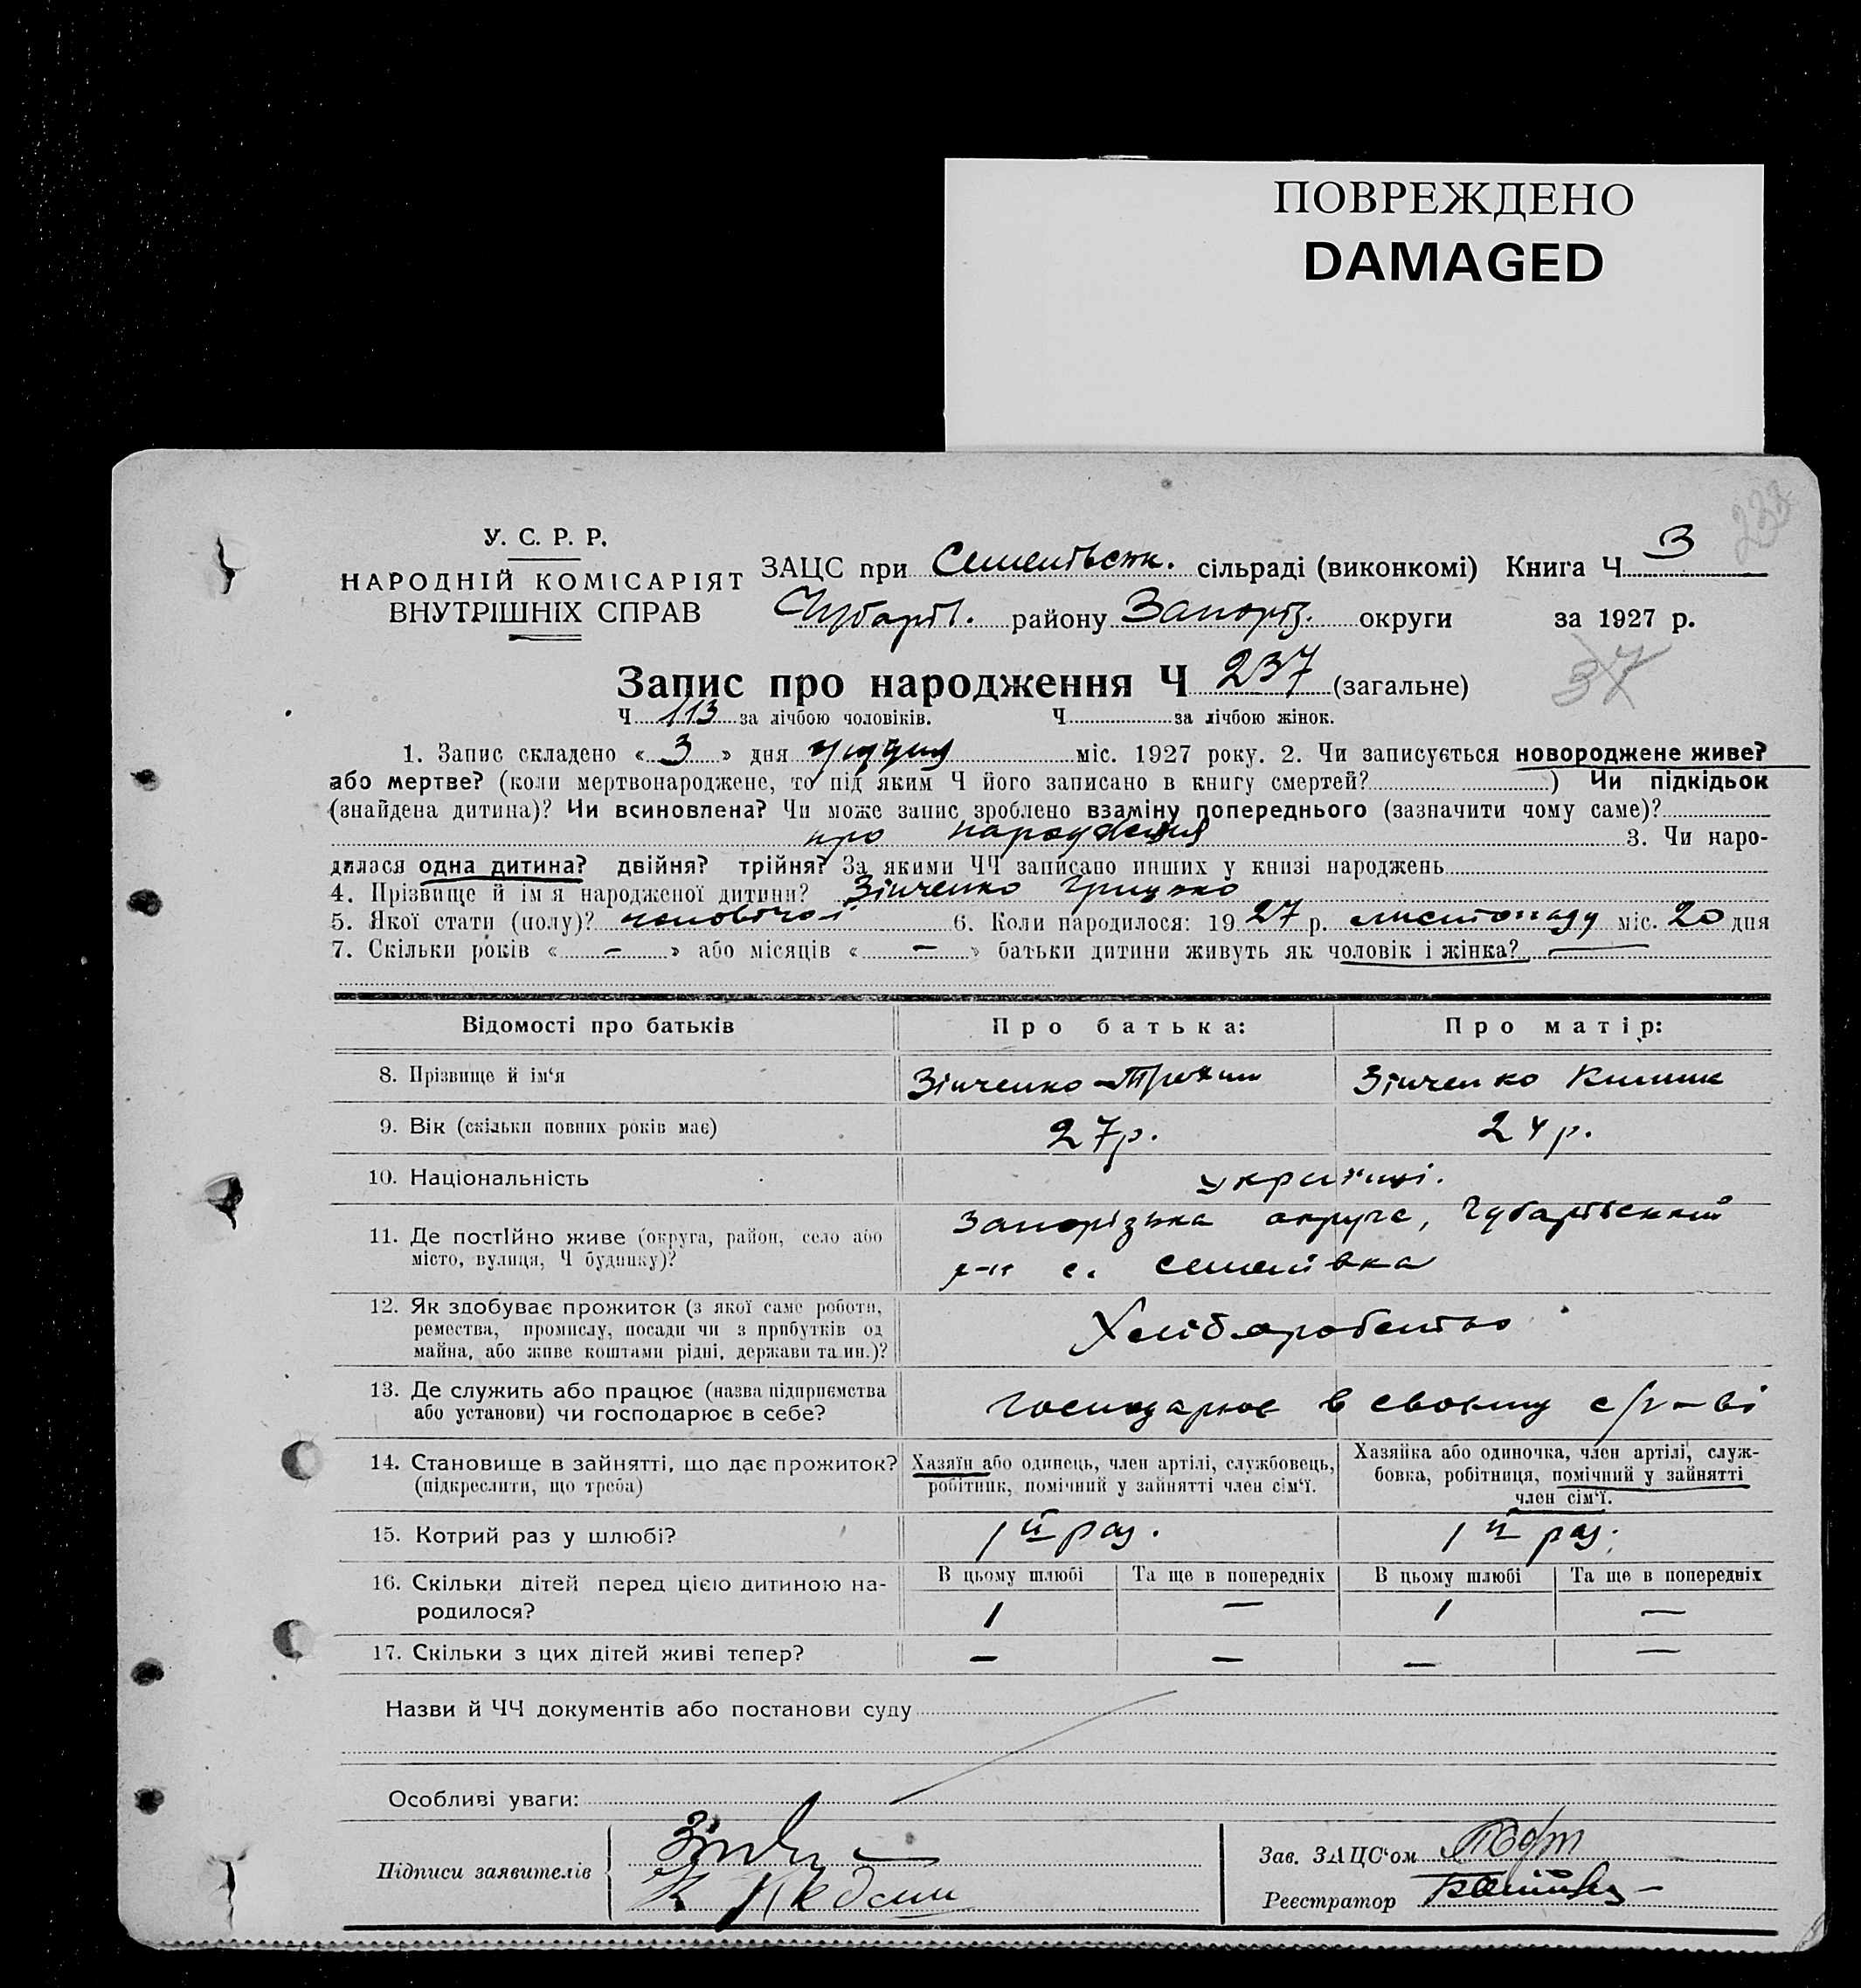 ПОВРЕЖДЕНО
DAMAGED
233
У. С. Р. Р.
НАРОДНІЙ КОМІСАРІЯТ
ВНУТРІШНІХ СПРАВ
ЗАЦС при Семенівськ. сільраді (виконкомі) Книга Ч 3
Чубарів. району Запоріз. округи за 1927 р.
Запис про народження Ч 237 (загальне)
37
Ч 113 за лічбою чоловіків. Ч за лічбою жінок.
1. Запис складено « 3 » дня грудня міс. 1927 року. 2. Чи записується новороджене живе?
або мертве? (коли мертвонароджене, то під яким Ч його записано в книгу смертей? ) Чи підкідьок
(знайдена дитина)? Чи всиновлена? Чи може запис зроблено взаміну попереднього (зазначити чому саме)?
про народження 3. Чи наро-
дилася одна дитина? двійня? трійня? За якими ЧЧ записано инших у книзі народжень
4. Прізвище й ім'я народженої дитини? Зінченко Грицько
5. Якої стати (полу)? чоловічої 6. Коли народилося: 19 27 р. листопаду міс. 20 дня
7. Скільки років « — » або місяців « — » батьки дитини живуть як чоловік і жінка? —
Відомості про батьків Про батька: Про матір:
8. Прізвище й ім'я Зінченко Трохим Зінченко
9. Вік (скільки повних років має) 27 р. 24 р.
10. Національність українці.
11. Де постійно живе (округа, район, село або Запорізька округа, Чубарівський
місто, вулиця, Ч будинку)? р-н с. Семенівка
12. Як здобуває прожиток (з якої саме роботи,
ремества, промислу, посади чи з прибутків од Хліборобство
майна, або живе коштами рідні, держави та ин.)?
13. Де служить або працює (назва підприємства
або установи) чи господарює в себе? господарює в своєму с/г-ві
14. Становище в зайнятті, що дає прожиток? Хазяїн або одинець, член артілі, службовець, Хазяйка або одиночка, член артілі, служ-
(підкреслити, що треба) робітник, помічний у зайнятті член сім'ї. бовка, робітниця, помічний у зайнятті
член сім'ї.
15. Котрий раз у шлюбі? 1й раз. 1й раз.
16. Скільки дітей перед цією дитиною на- В цьому шлюбі Та ще в попередніх В цьому шлюбі Та ще в попередніх
родилося? 1 — 1 —
17. Скільки з цих дітей живі тепер? — — — —
Назви й ЧЧ документів або постанови суду
Особливі уваги:
Підписи заявителів
Зав. ЗАЦС'ом
Реестратор